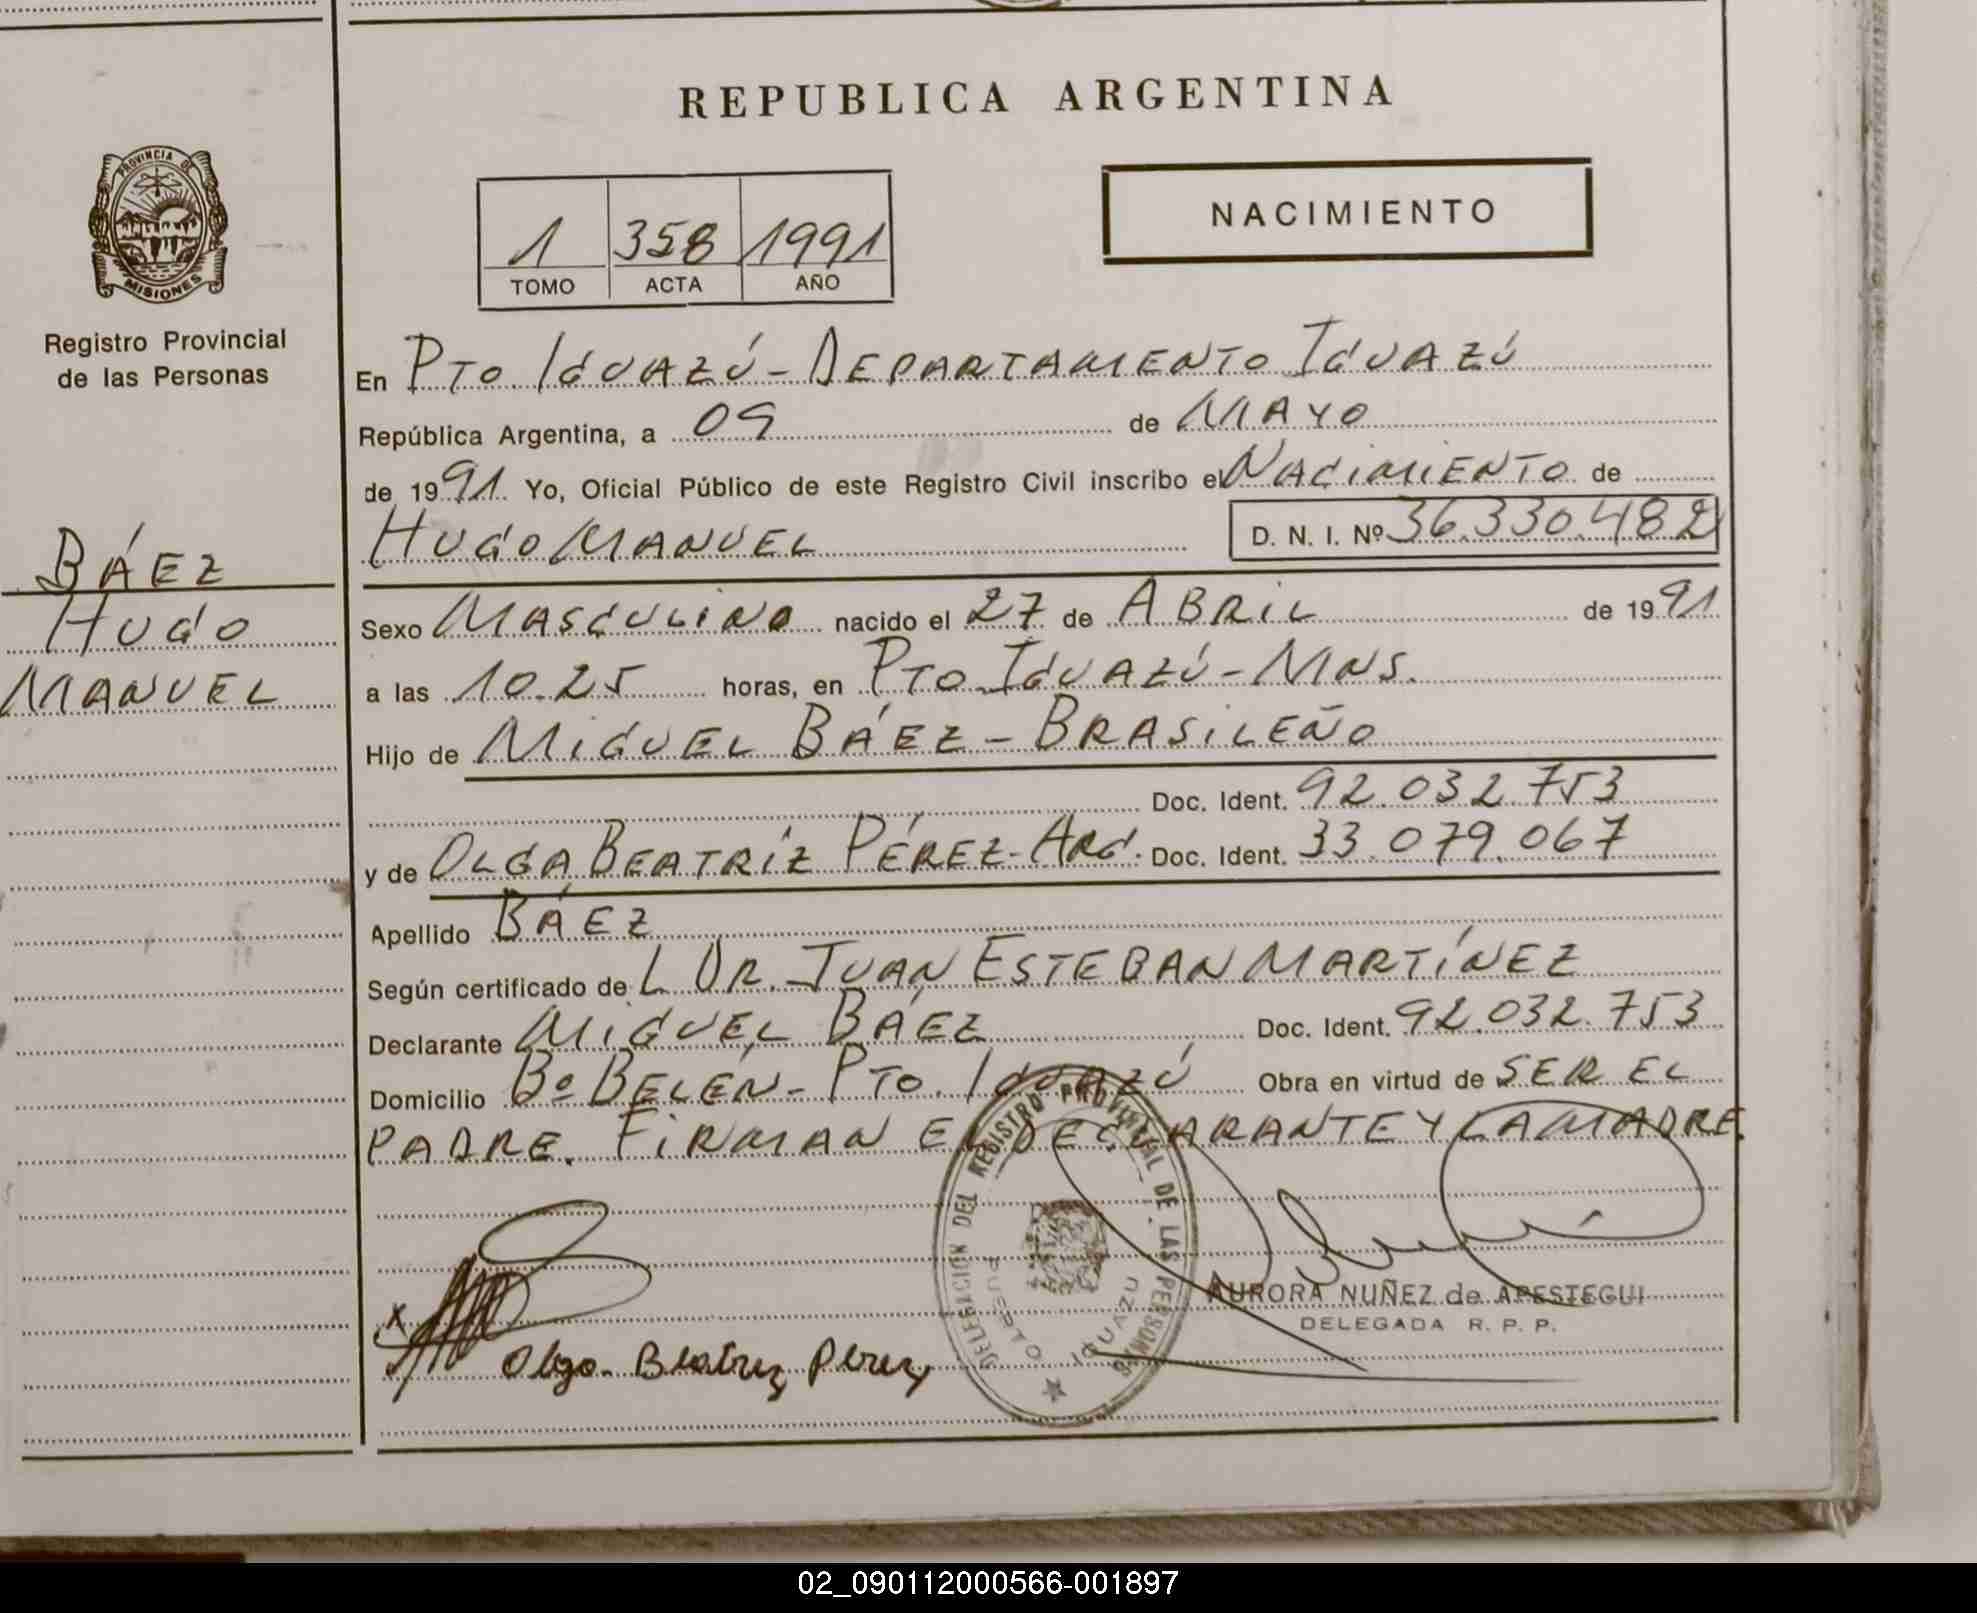 REPUBLICA ARGENTINA
PROVINCIA DE
MISIONES
Registro Provincial
de las Personas
BÁEZ
HUGO
MANUEL
1 358 1991
TOMO ACTA AÑO
NACIMIENTO
En PTO. IGUAZÚ - DEPARTAMENTO IGUAZÚ
República Argentina, a 09 de MAYO
de 1991. Yo, Oficial Público de este Registro Civil inscribo el NACIMIENTO de
HUGO MANUEL D. N. I. Nº 36.330.482
Sexo MASCULINO nacido el 27 de ABRIL de 1991
a las 10.25 horas, en PTO. IGUAZÚ - MNS.
Hijo de MIGUEL BÁEZ - BRASILEÑO
Doc. Ident. 92.032.753
y de OLGA BEATRÍZ PÉREZ - ARG. Doc. Ident. 33.079.067
Apellido BÁEZ
Según certificado de L DR. JUAN ESTEBAN MARTÍNEZ
Declarante MIGUEL BÁEZ Doc. Ident. 92.032.753
Domicilio Bº BELÉN - PTO. IGUAZÚ Obra en virtud de SER EL
PADRE. FIRMAN EL DECLARANTE Y LA MADRE.
DELEGACIÓN DEL REGISTRO PROVINCIAL DE LAS PERSONAS
PUERTO IGUAZU
AURORA NUÑEZ de APESTEGUI
DELEGADA R. P. P.
X
Olga Beatriz Perez
02_090112000566-001897